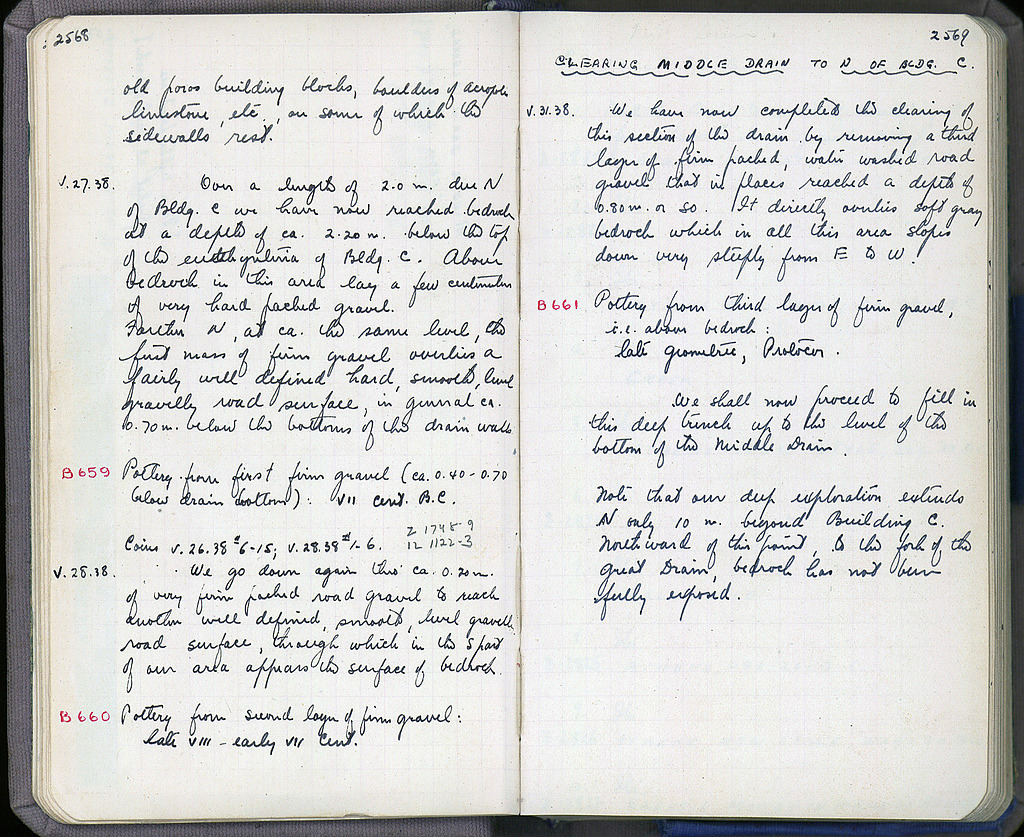 2568
old poros building blocks, boulders of acropolis
limestone, etc., on some of which the
sidewalls rest.
V.27.38. Over a length of 2.0 m. due N
of Bldg. C we have now reached bedrock
at a depth of ca. 2.20 m. below the top
of the euthynteria of Bldg. C. Above
bedrock in this area lay a few centimeters
of very hard packed gravel.
Farther N, at ca. the same level, the
first mass of firm gravel overlies a
fairly well defined hard, smooth, level
gravelly road surface, in general ca.
0.70 m. below the bottoms of the drain walls.
B659 Pottery from first firm gravel (ca. 0.40-0.70
below drain bottom): VII cent. B.C.
Z 1748-9
Coins V.26.38 #6-15; V.28.38 #1-6. IZ 1122-3
V.28.38. We go down again thro' ca. 0.20 m.
of very firm packed road gravel to reach
another well defined, smooth, level gravelly
road surface, through which in the S part
of our area appears the surface of bedrock.
B660 Pottery from second layer of firm gravel:
late VIII - early VII cent.
2569
CLEARING MIDDLE DRAIN TO N OF BLDG. C.
V.31.38. We have now completed the clearing of
this section of the drain by removing a third
layer of firm packed, water washed road
gravel that in places reached a depth of
0.80 m. or so. It directly overlies soft gray
bedrock which in all this area slopes
down very steeply from E to W.
B661 Pottery from third layer of firm gravel,
i.e. above bedrock:
late geometric, Protocor.
We shall now proceed to fill in
this deep trench up to the level of the
bottom of the Middle Drain.
Note that our deep exploration extends
N only 10 m. beyond Building C.
Northward of this point, to the fork of the
Great Drain, bedrock has not been
fully exposed.